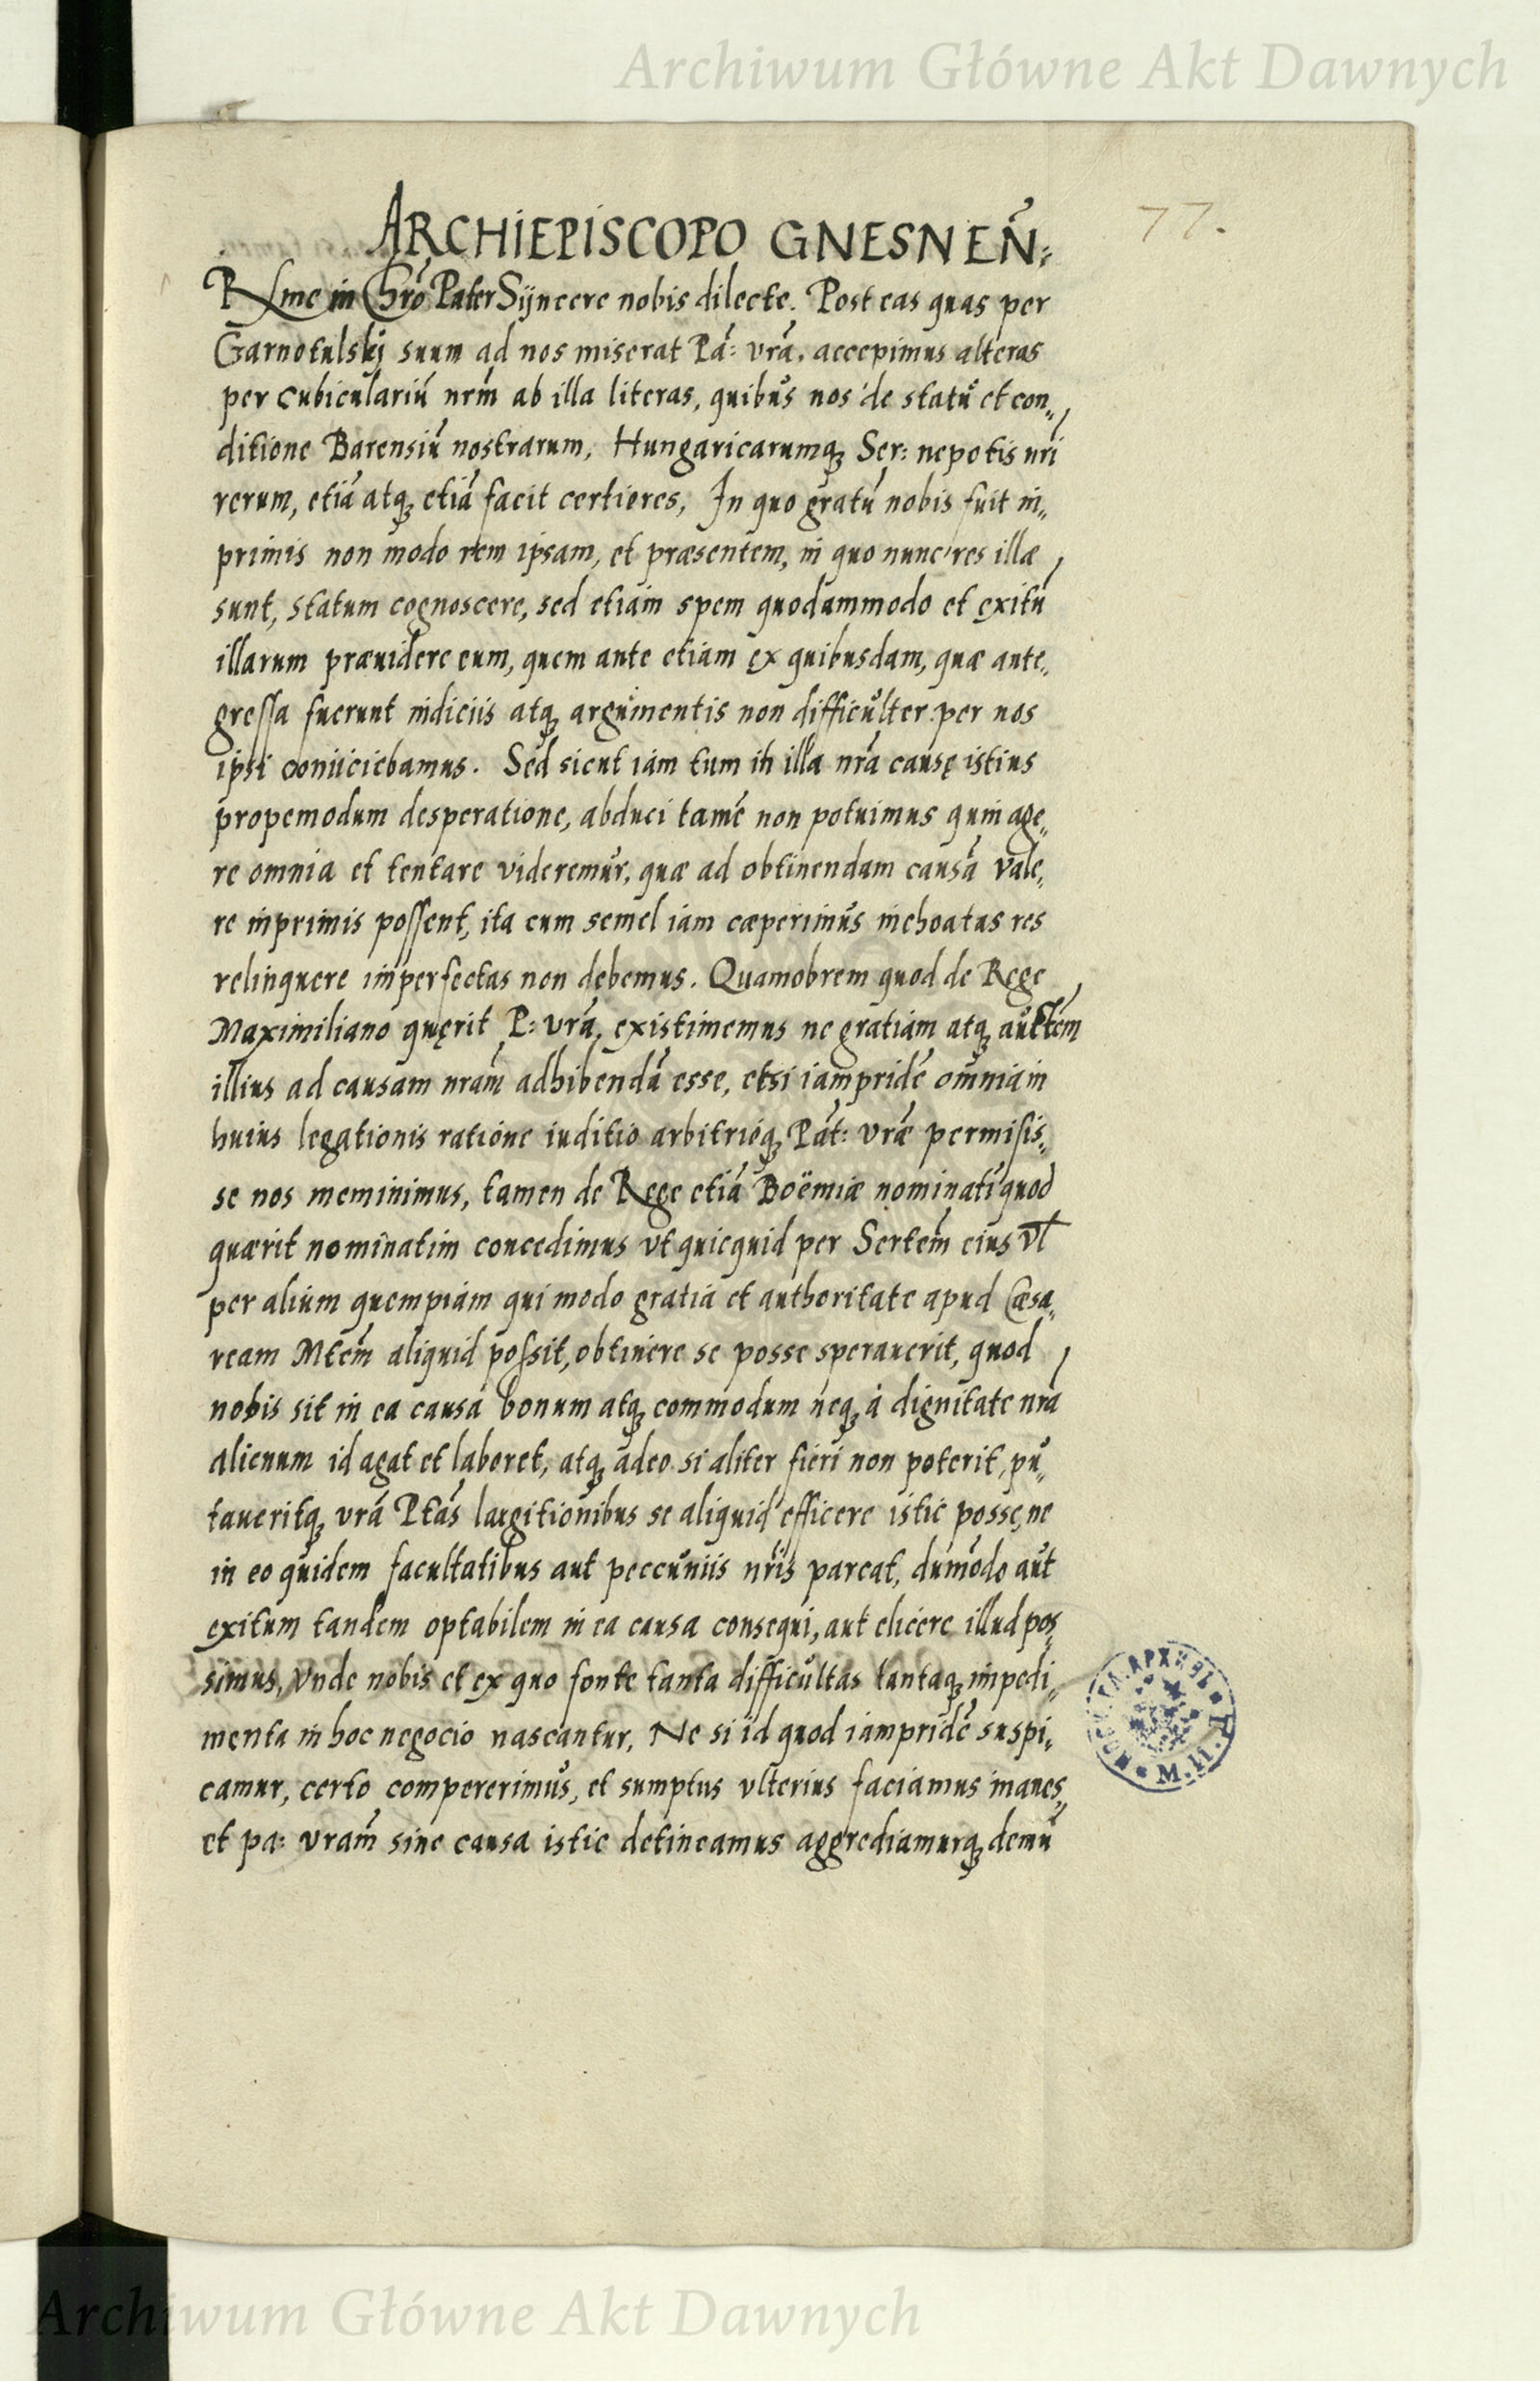 Archiwum Główne Akt Dawnych
77.
ARCHIEPISCOPO GNESNEÑ:
Rme in Chrõ Pater Sÿncere nobis dilecte. Post eas quas per
Garnotulskj suum ad nos miserat Pã: vrã. accepimus alteras
per cubiculariũ nrm̃ ab illa literas, quibus nos de statu et con„
ditione Barensiũ nostrarum, Hungaricarumq Ser: nepotis nri
rerum, etiã atq etiã facit certiores, In quo gratũ nobis fuit in„
primis non modo rem ipsam, et præsentem, in quo nunc res illæ
sunt, statum cognoscere, sed etiam spem quodammodo et exitũ
illarum præuidere eum, quem ante etiam ex quibusdam, quæ ante„
gressa fuerunt indiciis atq argumentis non difficulter per nos
ipsi coniiciebamus. Sed sicut iam tum in illa nrã causę istius
propemodum desperatione, abduci tamẽ non potuimus quin age„
re omnia et tentare videremur, quæ ad obtinendam causã vale„
re inprimis possent, ita cum semel iam cæperimus inchoatas res
relinquere imperfectas non debemus. Quamobrem quod de Rege
Maximiliano quęrit P: vrã, existimemus ne gratiam atq auctem̃
illius ad causam nram̃ adhibendã esse, etsi iampridẽ omniam
huius legationis ratione iuditio arbitrioq Pat̃: vræ̃ permisis„
se nos meminimus, tamen de Rege etiã Boëmiæ nominatĩ quod
quærit nominatim concedimus vt quicquid per Sertem̃ eius vl
per alium quempiam qui modo gratia et authoritate apud Cæsa„
ream Mtem̃ aliquid possit, obtinere se posse sperauerit, quod
nobis sit in ea causa bonum atq commodum neq à dignitate nra
alienum id agat et laboret, atq adeo si aliter fieri non poterit, pu„
taueritq vrã Ptas̃ largitionibus se aliquid efficere istic posse, ne
in eo quidem facultatibus aut peccuniis nris̃ parcat, dum̃odo aut
exitum tandem optabilem in ea causa consequi, aut elicere illud pos„
simus, vnde nobis et ex quo fonte tanta difficultas tantaq impedi„
menta in hoc negocio nascantur, Ne si id quod iampridẽ suspi„
camur, certo compererimus, et sumptus vlterius faciamus inanes,
et pa: vram̃ sine causa istic detineamus aggrediamurq demũ
М.И.Ю.
Archiwum Główne Akt Dawnych